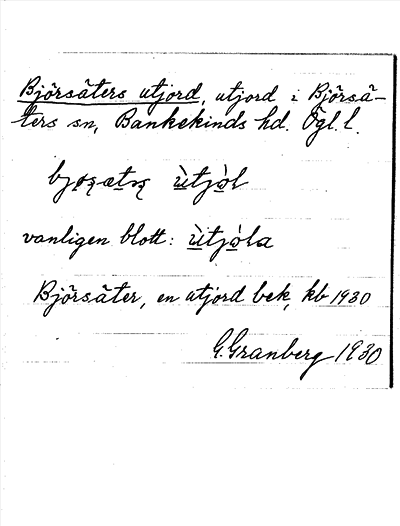 Björsäters utjord, utjord i Björsä-
ters sn, Bankekinds hd. Ögl. l.
bjøʂætɳʂ ùtjòl
vanligen blott: ùtjòla
Björsäter, en utjord bek, kb 1930
G. Granberg 1930